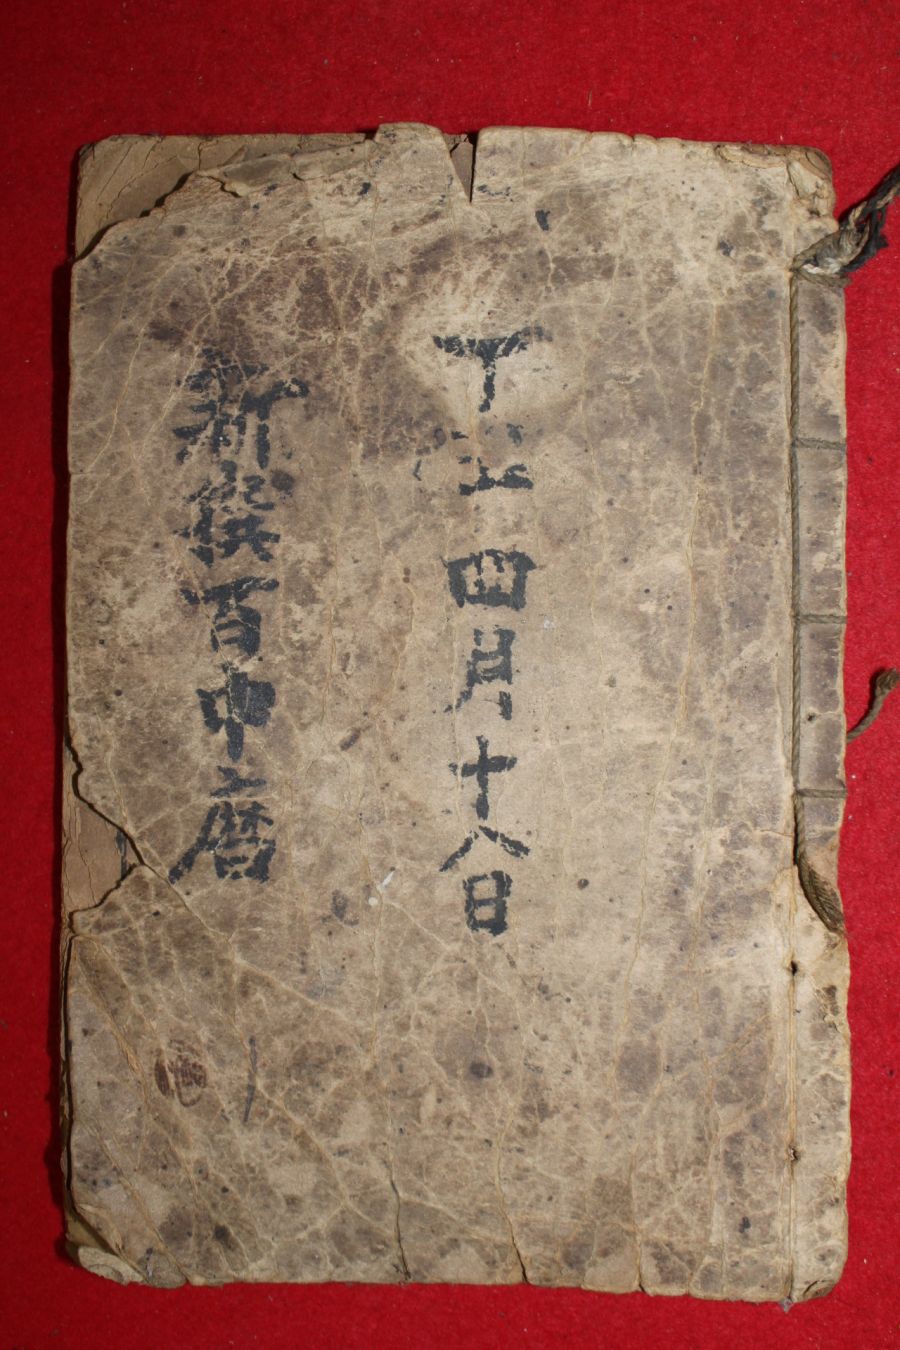 丁 四月十八日
新撰百中曆